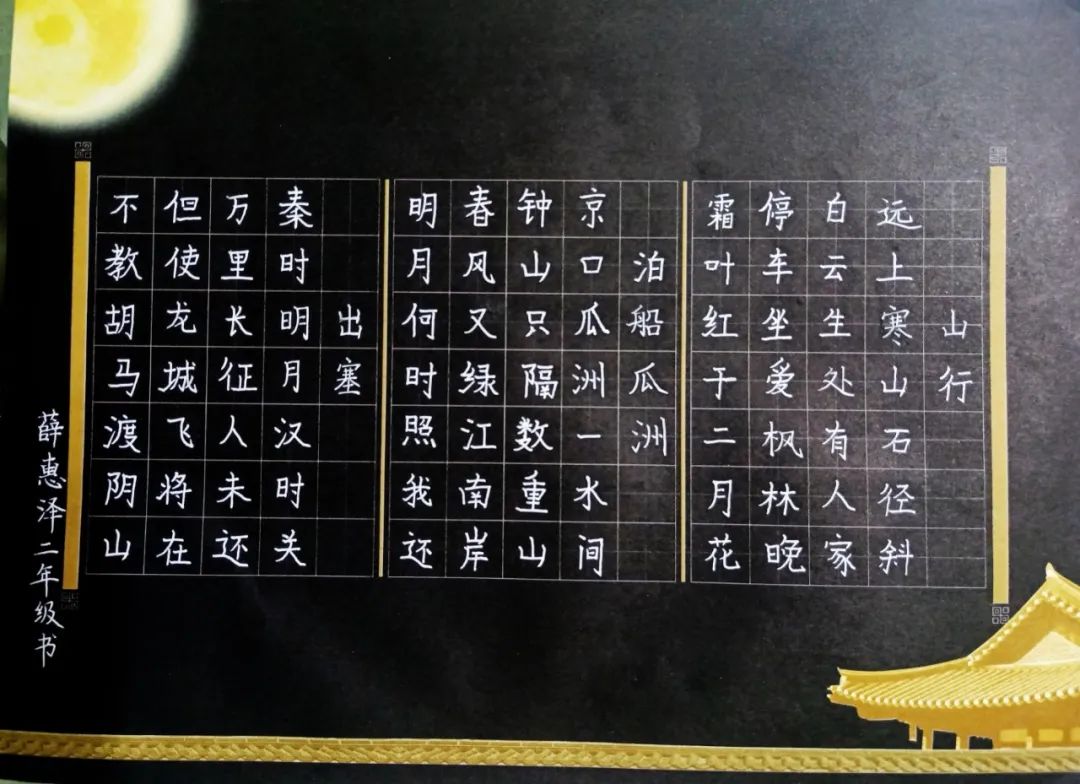 山行
远上寒山石径斜
白云生处有人家
停车坐爱枫林晚
霜叶红于二月花
泊船瓜洲
京口瓜洲一水间
钟山只隔数重山
春风又绿江南岸
明月何时照我还
出塞
秦时明月汉时关
万里长征人未还
但使龙城飞将在
不教胡马渡阴山
薛惠泽二年级书